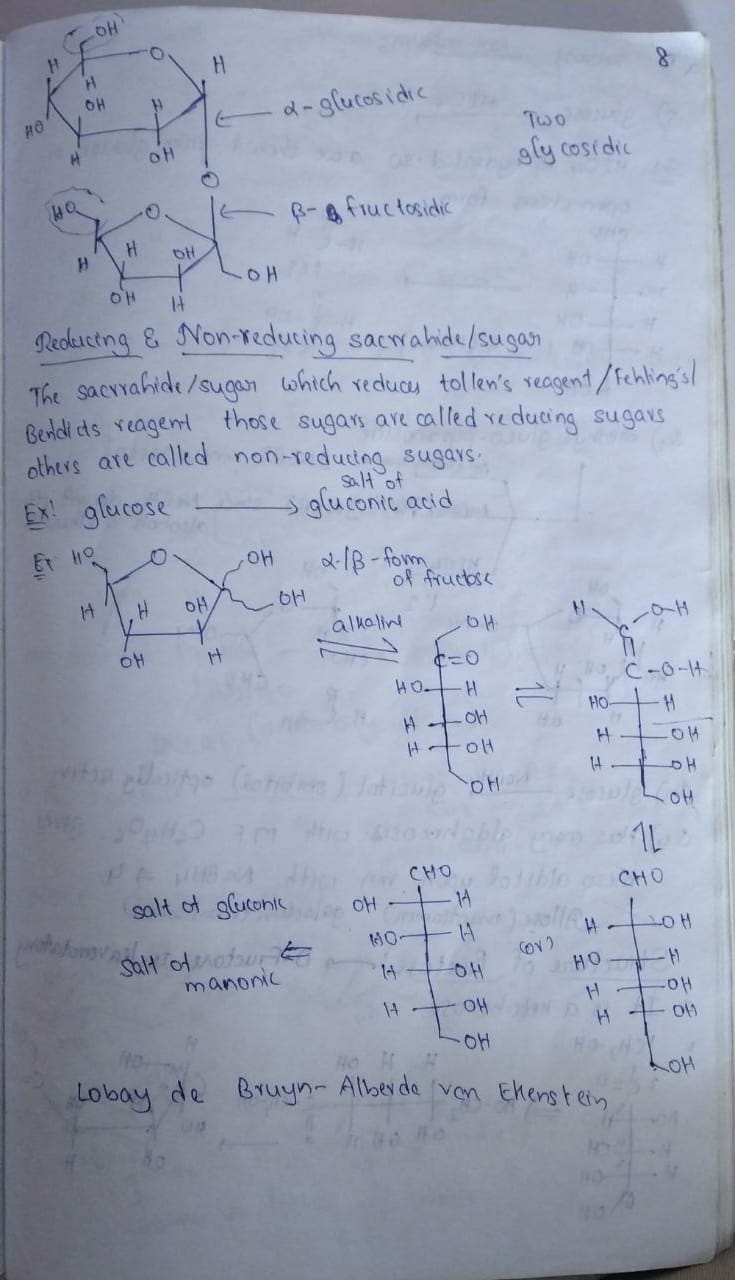 8
OH
H O H
H
OH H
HO
H OH
α-glucosidic
Two
glycosidic
O
HO O
β-fructosidic
H H OH
OH
OH H
Reducing & Non-reducing sacrrahide/sugar
The sacrrahide/sugar which reduces tollen's reagent/Fehling's/
Bendicts reagent those sugars are called reducing sugars
others are called non-reducing sugars.
salt of
Ex! glucose → gluconic acid
Ex HO O OH
α-/β-form
of fructose
OH
H H OH
OH H
alkaline
OH
C=O
HO H
H OH
H OH
OH
H O-H
C
C-O-H
HO H
H OH
H OH
OH
CHO
OH H
HO H
H OH
H OH
OH
(or)
CHO
H OH
HO H
H OH
H OH
OH
salt of gluconic
salt of
manonic
Lobay de Bruyn-Alberda van Ekenstein